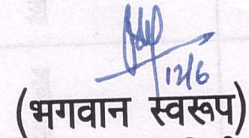 12/6
(भगवान स्वरूप)